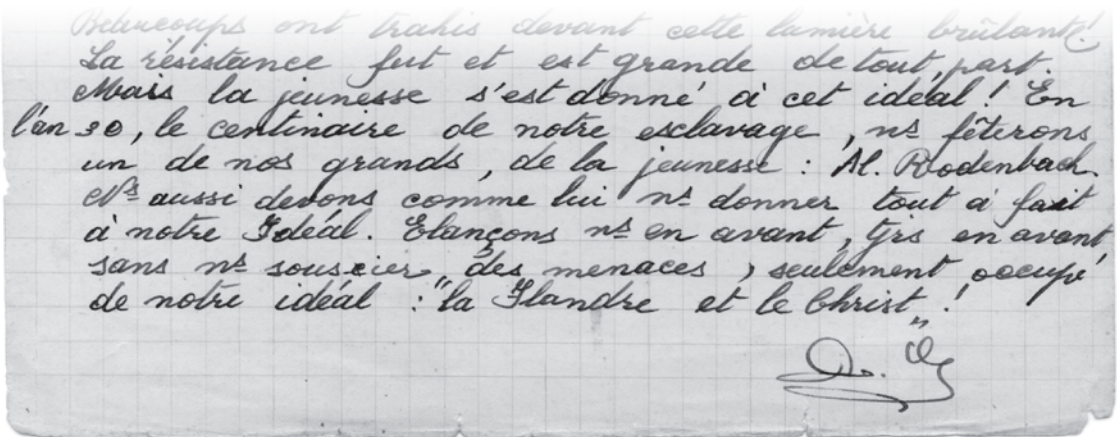 Beaucoups ont trahis devant cette lumière brûlante!
La résistance fut et est grande de tout part.
Mais la jeunesse s'est donné à cet idéal! En
l'an 30, le centinaire de notre esclavage, ns fêterons
un de nos grands, de la jeunesse: Al. Rodenbach.
Ns aussi devons comme lui ns donner tout à fait
à notre Idéal. Elançons ns en avant, tjrs en avant
sans ns soucier, des menaces, seulement occupé
de notre idéal: "la Flandre et le Christ"!